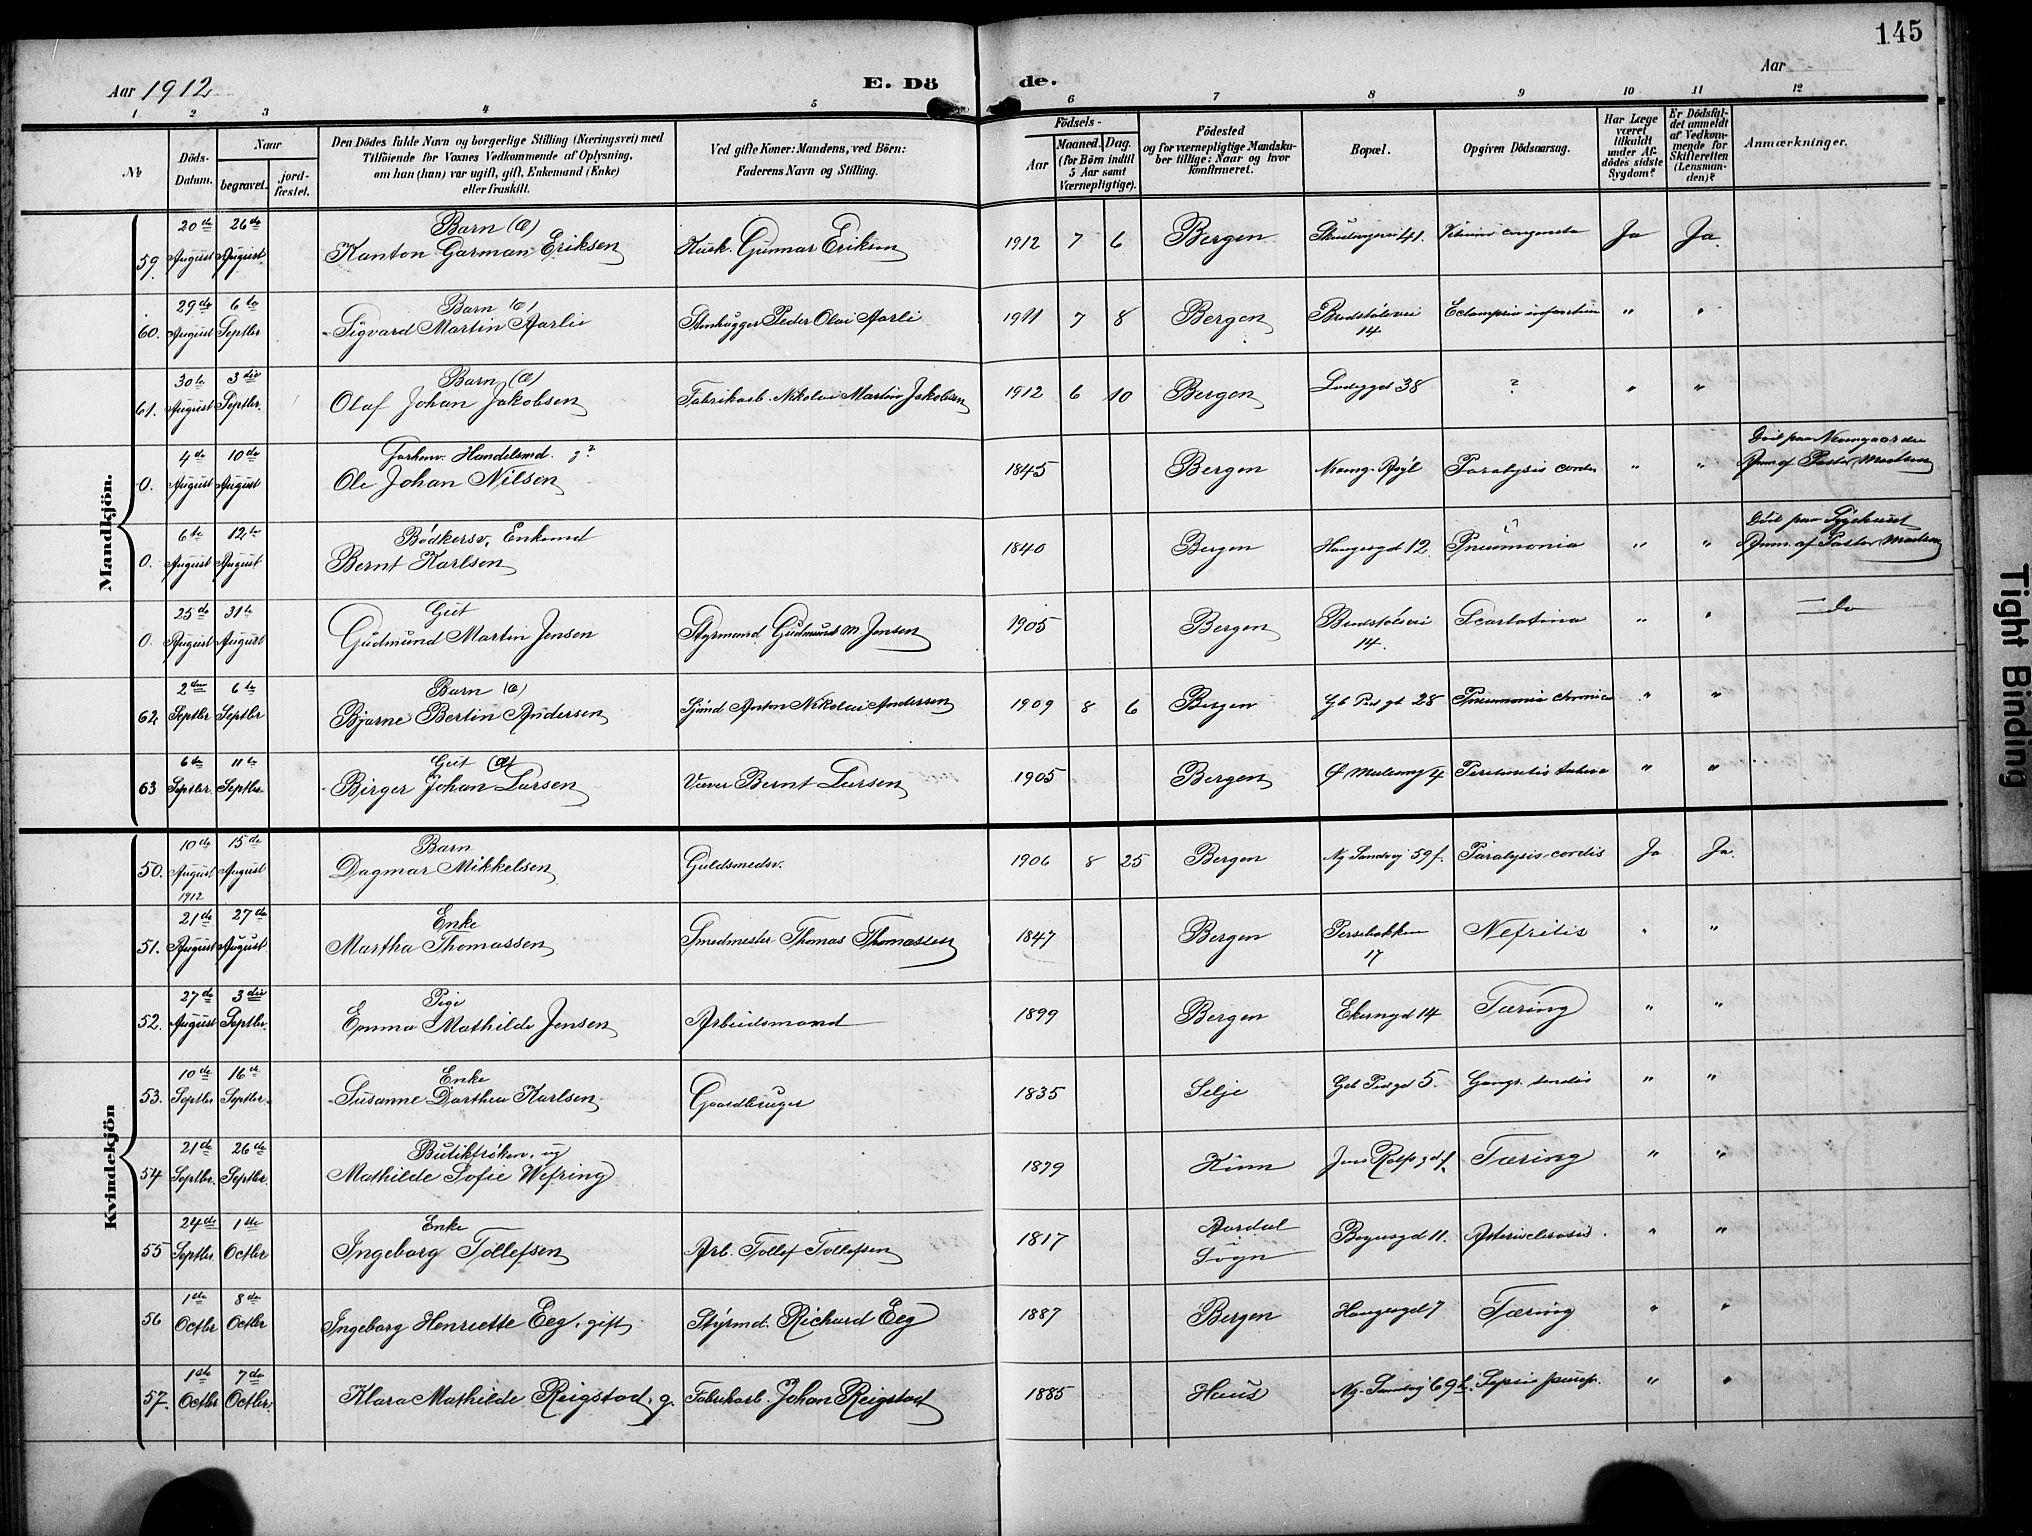 145
Aar 1912
E. Dö de.
Aar
1 2 3 4 5 6 7 8 9 10 11 12
No
Döds-Datum.
Naar
begravet.
jord-fæstet.
Den Dödes fulde Navn og borgerlige Stilling (Næringsvei) med
Tilföiende for Voxnes Vedkommende af Oplysning,
om han (hun) var ugift, gift, Enkemand (Enke)
eller fraskilt.
Ved gifte Koner: Mandens, ved Börn:
Faderens Navn og Stilling.
Födsels-
Aar
Maaned. Dag.
(for Börn indtil
5 Aar samt
Værnepligtige).
Födested
og for værnepligtige Mandska-
ber tillige: Naar og hvor
konfirmeret.
Bopæl.
Opgiven Dödsaarsag.
Har Læge
været
tilkaldt
under Af-
dödes sidste
Sygdom?
Er Dödsfal-
det anmeldt
af Vedkom-
mende for
Skifteretten
(Lensman-
den)?
Anmærkninger.
Mandkjön.
59. 20de August 26de August Barn (Æ)
Kanton Garman Eriksen Kusk. Gunnar Eriksen 1912 7 6 Bergen 41. Ja Ja.
60. 29de August 6te Septbr Barn (Æ)
Sigvard Martin Aarlie Stenhugger Peder Olai Aarli 1911 7 8 Bergen 14 Eclampsia infantium " "
61. 30te August 3die Septbr. Barn (Æ)
Olaf Johan Jakobsen Fabrikarb. Nikolai Martin Jakobsen 1912 6 10 Bergen 38 ? " "
0. 4de August 10de August Forhenv. Handelsmd. g?
Ole Johan Nilsen 1845 Bergen Paralysis cordis " " Död paa Neevngaarden
Anm. af Pastor Madsen
0. 6te August 12te August Bödkersv. Enkemd
Bernt Karlsen 1840 Bergen Haugesgd 12. Pneumonia " " Död paa Sygehuset
Anm. af Pastor Madsen
0. 25de August 31te August Gut
Gudmund Martin Jensen Styrmand Gudmund M. Jensen 1905 Bergen 14. Scarlatina " " do
62. 2den Septbr 6te Septbr Barn (Æ)
Bjarne Bertin Andersen Sjömd Anton Nikolai Andersen 1909 8 6 Bergen 28 Pneumonia chronica " "
63 6te Septbr. 11te Septbr. Gut (Æ)
Birger Johan Larsen Væver Bernt Larsen 1905 Bergen 4 " "
Kvindekjön
50. 10de August 1912 15de August Barn
Dagmar Mikkelsen Guldsmedsv. 1906 8 25 Bergen Ny Sandvej 59 f. Paralysis cordis Ja Ja.
51. 21de August 27de August Enke
Martha Thomassen Smedmester Thomas Thomassen 1847 Bergen Persebakken
17 Nefritis " "
52. 27de August 3die Septbr. Pige
Emma Mathilde Jensen Arbeidsmand 1899 Bergen Ekerngd 14 Tæring " "
53. 10de Septbr 16de Septbr. Enke
Susanne Dorthea Karlsen Gaardbruger 1835 Selje 5. Gangr. senilis " "
54 21de Septbr. 26de Septbr. Butikfröken, ug
Mathilde Sofie Wefring 1879 Kinn Jens Rolfs gd Tæring " "
55 24de Septbr. 1ste Octbr Enke
Ingeborg Tollefsen Arb. Tollef Tollefsen 1817 Aardal
Sogn 11. " "
56 1ste Octbr 8de Octbr Ingeborg Henriette Eeg, gift. Styrmd. Richard Eeg 1887 Bergen Haugesgd 7 Tæring " "
57. 1ste Octbr 7de Octbr. Klara Mathilde Reigstad, g. Fabrikarb. Johan Reigstad 1885 Haus Ny-Sandvej 69 Sepsis puerp. " "
Tight Binding